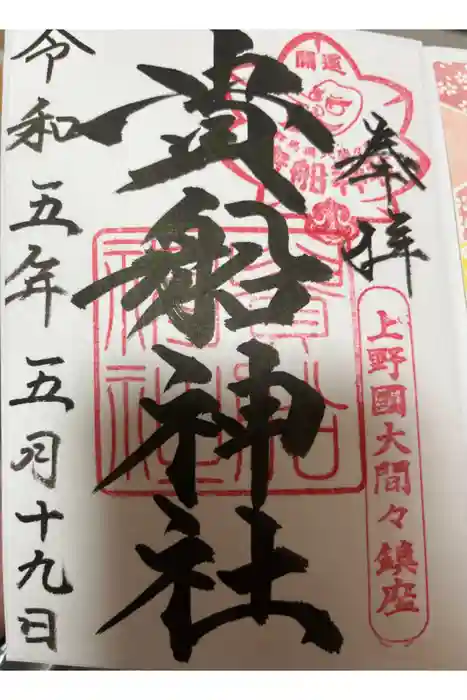 奉拝
上野國大間々鎮座
開運
貴船神社
令和五年五月十九日